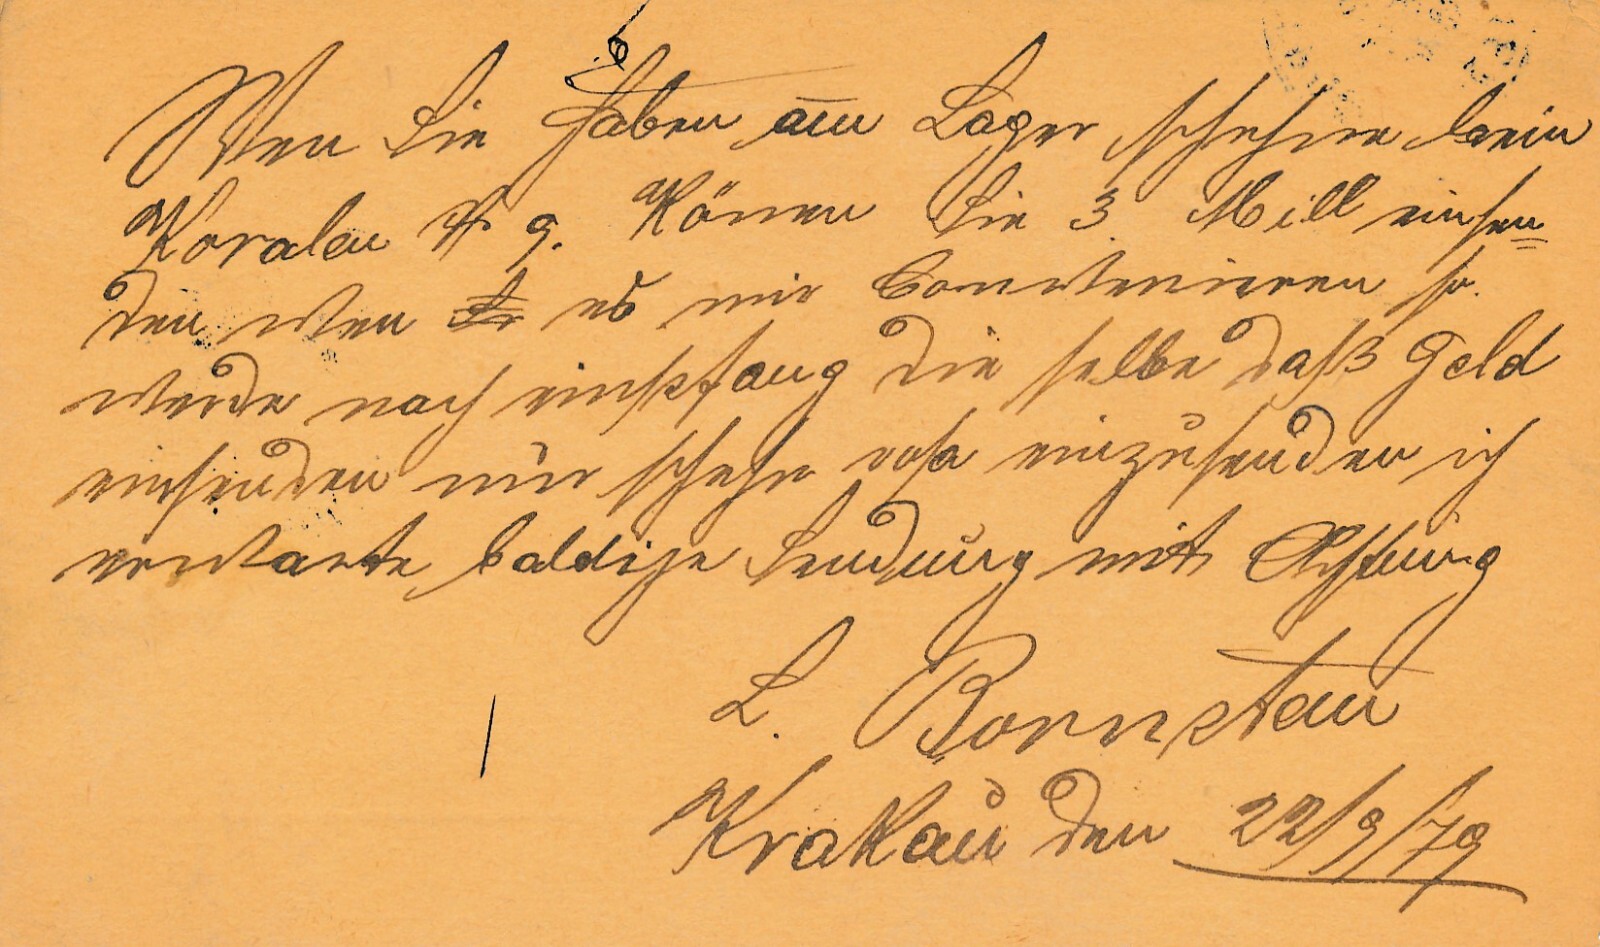 Wen Sie haben am Lager schehne bein
Koralen N 9. Könen Sie 3 Mill einsen=
den wen es mir Conwenieren so
werde nach einpfang die selbe daß Geld
einsenden nur schehr rosa einzusenden ich
erwarte baldige Sendung mit Achtung
L. Bornstein
Krakau den 22/9/79